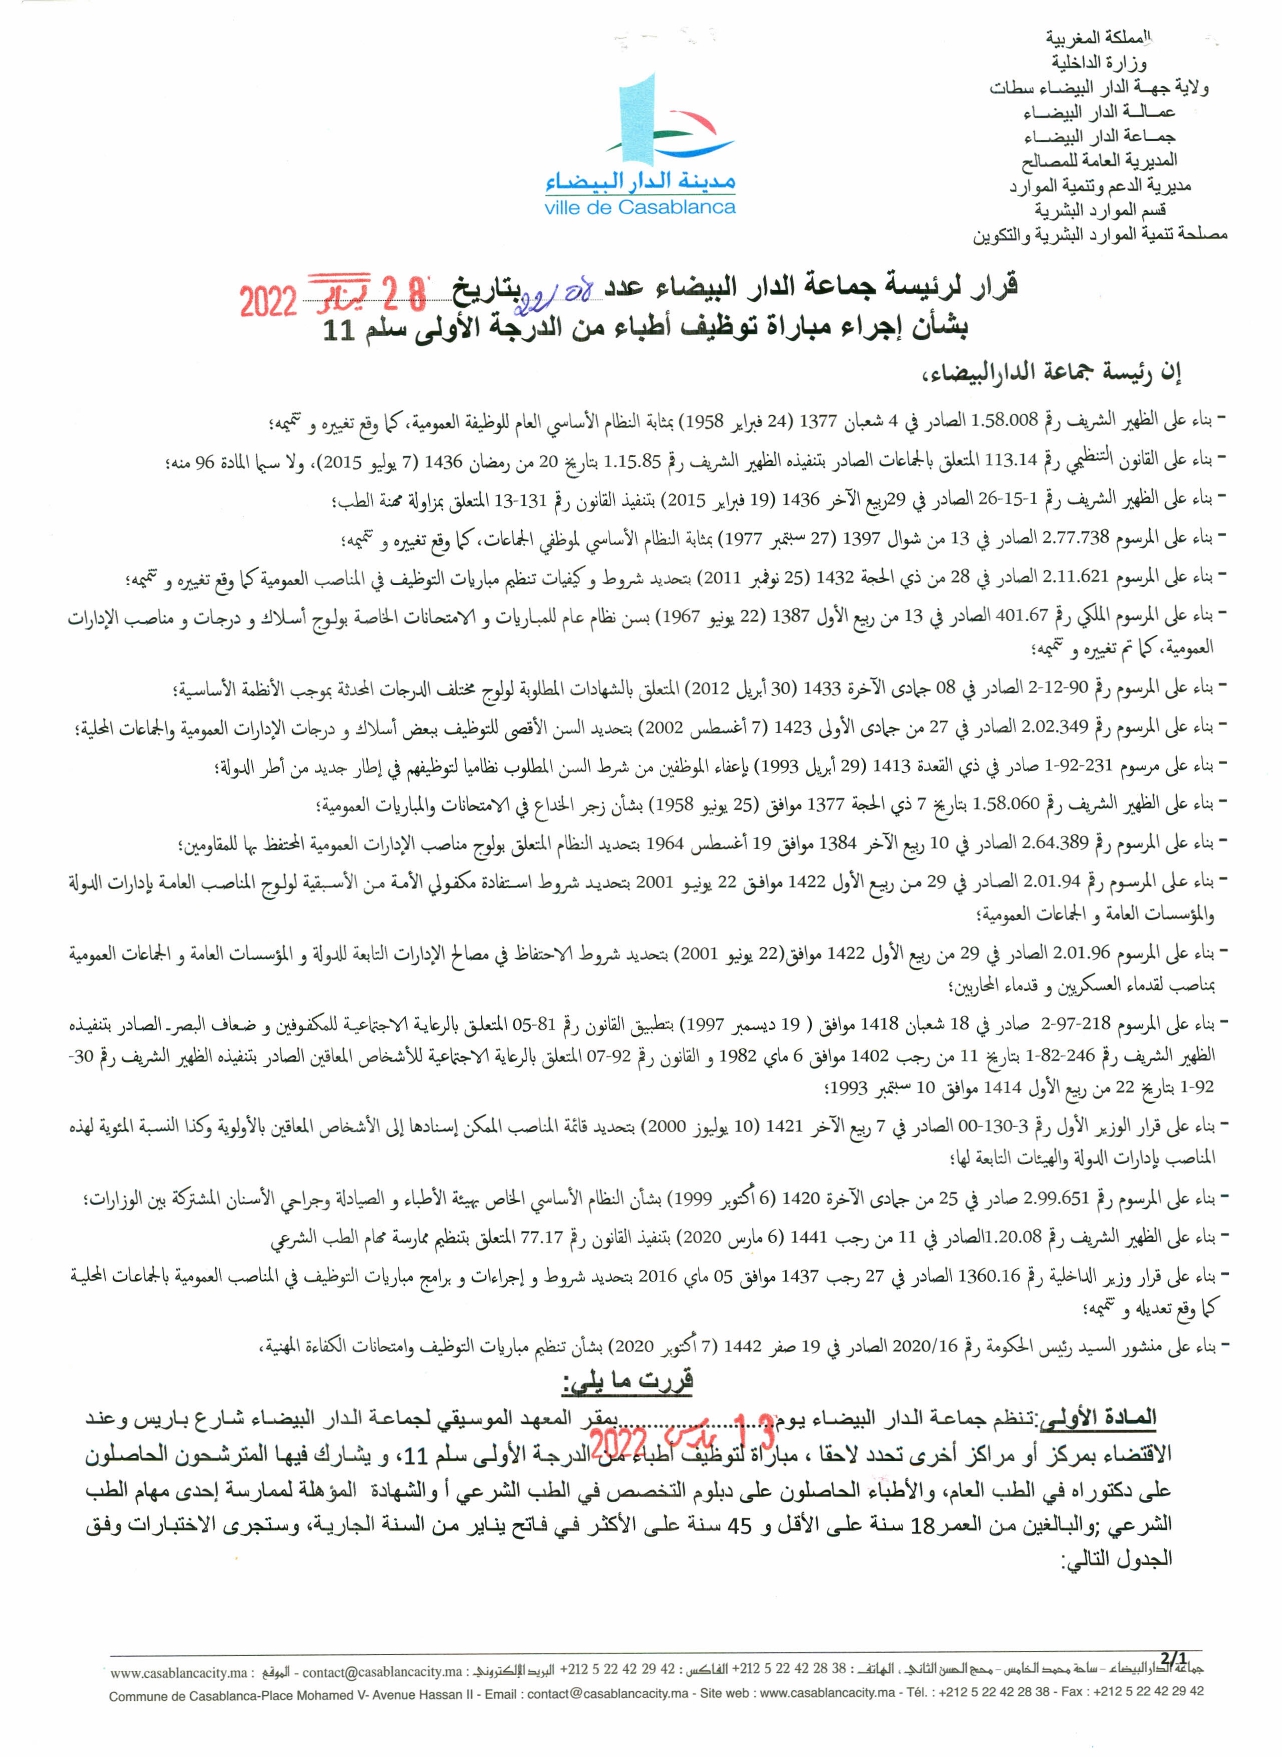 المملكة المغربية
وزارة الداخلية
ولاية جهة الدار البيضاء سطات
عمالة الدار البيضاء
جماعة الدار البيضاء
المديرية العامة للمصالح
مديرية الدعم وتنمية الموارد
قسم الموارد البشرية
مصلحة تنمية الموارد البشرية والتكوين
مدينة الدار البيضاء
ville de Casablanca
قرار لرئيسة جماعة الدار البيضاء عدد 22/08 بتاريخ 28 يناير 2022
بشأن إجراء مباراة توظيف أطباء من الدرجة الأولى سلم 11
إن رئيسة جماعة الدارالبيضاء،
- بناء على الظهير الشريف رقم 1.58.008 الصادر في 4 شعبان 1377 (24 فبراير 1958) بمثابة النظام الأساسي العام للوظيفة العمومية، كما وقع تغييره و تتميمه؛
- بناء على القانون التنظيمي رقم 113.14 المتعلق بالجماعات الصادر بتنفيذه الظهير الشريف رقم 1.15.85 بتاريخ 20 من رمضان 1436 (7 يوليو 2015)، ولا سيما المادة 96 منه؛
- بناء على الظهير الشريف رقم 1-15-26 الصادر في 29ربيع الآخر 1436 (19 فبراير 2015) بتنفيذ القانون رقم 131-13 المتعلق بمزاولة مهنة الطب؛
- بناء على المرسوم 2.77.738 الصادر في 13 من شوال 1397 (27 سبتمبر 1977) بمثابة النظام الأساسي لموظفي الجماعات، كما وقع تغييره و تتميمه؛
- بناء على المرسوم 2.11.621 الصادر في 28 من ذي الحجة 1432 (25 نوفمبر 2011) بتحديد شروط و كيفيات تنظيم مباريات التوظيف في المناصب العمومية كما وقع تغييره و تتميمه؛
- بناء على المرسوم الملكي رقم 401.67 الصادر في 13 من ربيع الأول 1387 (22 يونيو 1967) بسن نظام عام للمباريات و الامتحانات الخاصة بولوج أسلاك و درجات و مناصب الإدارات
العمومية، كما تم تغييره و تتميمه؛
- بناء على المرسوم رقم 90-12-2 الصادر في 08 جمادى الآخرة 1433 (30 أبريل 2012) المتعلق بالشهادات المطلوبة لولوج مختلف الدرجات المحدثة بموجب الأنظمة الأساسية؛
- بناء على المرسوم رقم 2.02.349 الصادر في 27 من جمادى الأولى 1423 (7 أغسطس 2002) بتحديد السن الأقصى للتوظيف ببعض أسلاك و درجات الإدارات العمومية والجماعات المحلية؛
- بناء على مرسوم 231-92-1 صادر في ذي القعدة 1413 (29 أبريل 1993) بإعفاء الموظفين من شرط السن المطلوب نظاميا لتوظيفهم في إطار جديد من أطر الدولة؛
- بناء على الظهير الشريف رقم 1.58.060 بتاريخ 7 ذي الحجة 1377 موافق (25 يونيو 1958) بشأن زجر الخداع في الامتحانات والمباريات العمومية؛
- بناء على المرسوم رقم 2.64.389 الصادر في 10 ربيع الآخر 1384 موافق 19 أغسطس 1964 بتحديد النظام المتعلق بولوج مناصب الإدارات العمومية المحتفظ بها للمقاومين؛
- بناء على المرسوم رقم 2.01.94 الصادر في 29 من ربيع الأول 1422 موافق 22 يونيو 2001 بتحديد شروط استفادة مكفولي الأمة من الأسبقية لولوج المناصب العامة بإدارات الدولة
والمؤسسات العامة و الجماعات العمومية؛
- بناء على المرسوم 2.01.96 الصادر في 29 من ربيع الأول 1422 موافق(22 يونيو 2001) بتحديد شروط الاحتفاظ في مصالح الإدارات التابعة للدولة و المؤسسات العامة و الجماعات العمومية
بمناصب لقدماء العسكريين و قدماء المحاربين؛
- بناء على المرسوم 218-97-2 صادر في 18 شعبان 1418 موافق ( 19 ديسمبر 1997) بتطبيق القانون رقم 81-05 المتعلق بالرعاية الاجتماعية للمكفوفين و ضعاف البصر الصادر بتنفيذه
الظهير الشريف رقم 246-82-1 بتاريخ 11 من رجب 1402 موافق 6 ماي 1982 و القانون رقم 92-07 المتعلق بالرعاية الاجتماعية للأشخاص المعاقين الصادر بتنفيذه الظهير الشريف رقم 30-
92-1 بتاريخ 22 من ربيع الأول 1414 موافق 10 سبتمبر 1993؛
- بناء على قرار الوزير الأول رقم 3-130-00 الصادر في 7 ربيع الآخر 1421 (10 يوليوز 2000) بتحديد قائمة المناصب الممكن إسنادها إلى الأشخاص المعاقين بالأولوية وكذا النسبة المئوية لهذه
المناصب بإدارات الدولة والهيئات التابعة لها؛
- بناء على المرسوم رقم 2.99.651 صادر في 25 من جمادى الآخرة 1420 (6 أكتوبر 1999) بشأن النظام الأساسي الخاص بهيئة الأطباء و الصيادلة وجراحي الأسنان المشتركة بين الوزارات؛
- بناء على الظهير الشريف رقم 1.20.08الصادر في 11 من رجب 1441 (6 مارس 2020) بتنفيذ القانون رقم 77.17 المتعلق بتنظيم ممارسة مهام الطب الشرعي
- بناء على قرار وزير الداخلية رقم 1360.16 الصادر في 27 رجب 1437 موافق 05 ماي 2016 بتحديد شروط و إجراءات و برامج مباريات التوظيف في المناصب العمومية بالجماعات المحلية
كما وقع تعديله و تتميمه؛
- بناء على منشور السيد رئيس الحكومة رقم 2020/16 الصادر في 19 صفر 1442 (7 أكتوبر 2020) بشأن تنظيم مباريات التوظيف وامتحانات الكفاءة المهنية،
قررت ما يلي:
المادة الأولى:تنظم جماعة الدار البيضاء يوم 13 مارس 2022 بمقر المعهد الموسيقي لجماعة الدار البيضاء شارع باريس وعند
الاقتضاء بمركز أو مراكز أخرى تحدد لاحقا ، مباراة لتوظيف أطباء من الدرجة الأولى سلم 11، و يشارك فيها المترشحون الحاصلون
على دكتوراه في الطب العام، والأطباء الحاصلون على دبلوم التخصص في الطب الشرعي أ والشهادة المؤهلة لممارسة إحدى مهام الطب
الشرعي ;والبالغين من العمر18 سنة على الأقل و 45 سنة على الأكثر في فاتح يناير من السنة الجارية، وستجرى الاختبارات وفق
الجدول التالي:
2/1
جماعة الدارالبيضاء - ساحة محمد الخامس - محج الحسن الثاني ، الهاتف : 38 28 42 22 5 212+ الفاكس : 42 29 42 22 5 212+ البريد الإلكتروني : contact@casablancacity.ma - الموقع : www.casablancacity.ma
Commune de Casablanca-Place Mohamed V- Avenue Hassan II - Email : contact@casablancacity.ma - Site web : www.casablancacity.ma - Tél. : +212 5 22 42 28 38 - Fax : +212 5 22 42 29 42